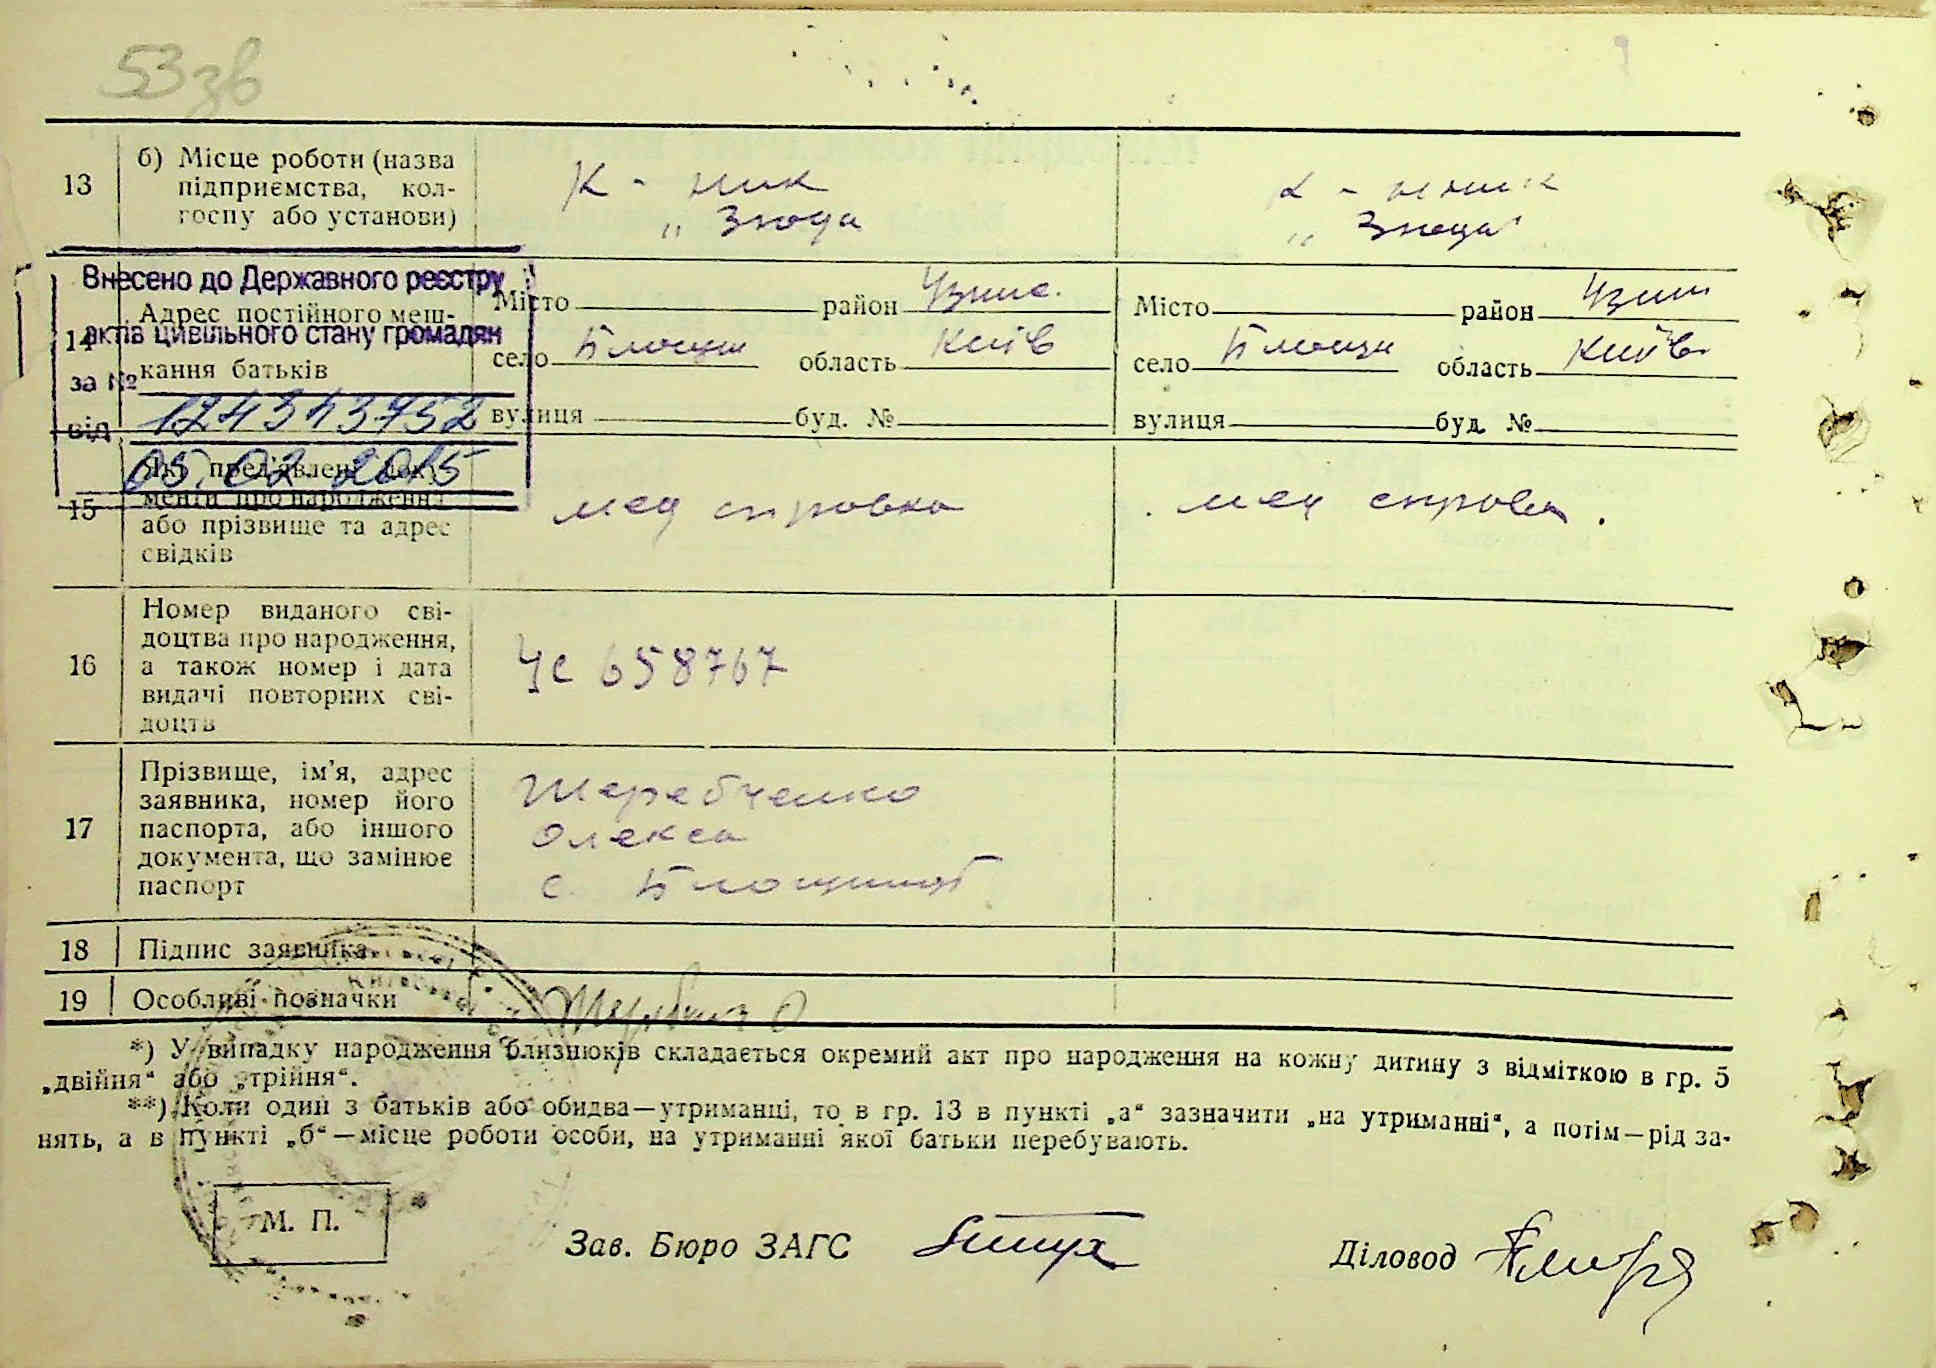 53зв
13 б) Місце роботи (назва підприємства, кол-
госпу або установи)
К - ник К - ник
„ Згода „ Згода
Внесено до Державного реєстру
актів цивільного стану громадян
за №
від 124343752
05.02.2015
14 Адрес постійного меш-
кання батьків
Місто район Узин. Місто район Узин
село Блощин область Київ село Блощин область Київ
вулиця буд. № вулиця буд. №
15 Які пред'явлені доку-
менти про народження
або прізвище та адрес
свідків
мед справка мед справка.
16 Номер виданого сві-
доцтва про народження,
а також номер і дата
видачі повторних сві-
доцтв
УС 658767
17 Прізвище, ім'я, адрес
заявника, номер його
паспорта, або іншого
документа, що замінює
паспорт
Жеребченко
Олекса
с.
18 Підпис заявника
19 Особливі позначки
*) У випадку народження близнюків складається окремий акт про народження на кожну дитину з відміткою в гр. 5
„двійня“ або „трійня“.
**) Коли один з батьків або обидва—утриманці, то в гр. 13 в пункті „а“ зазначити „на утриманні“, а потім—рід за-
нять, а в пункті „б“—місце роботи особи, на утриманні якої батьки перебувають.
М. П.
Зав. Бюро ЗАГС Діловод